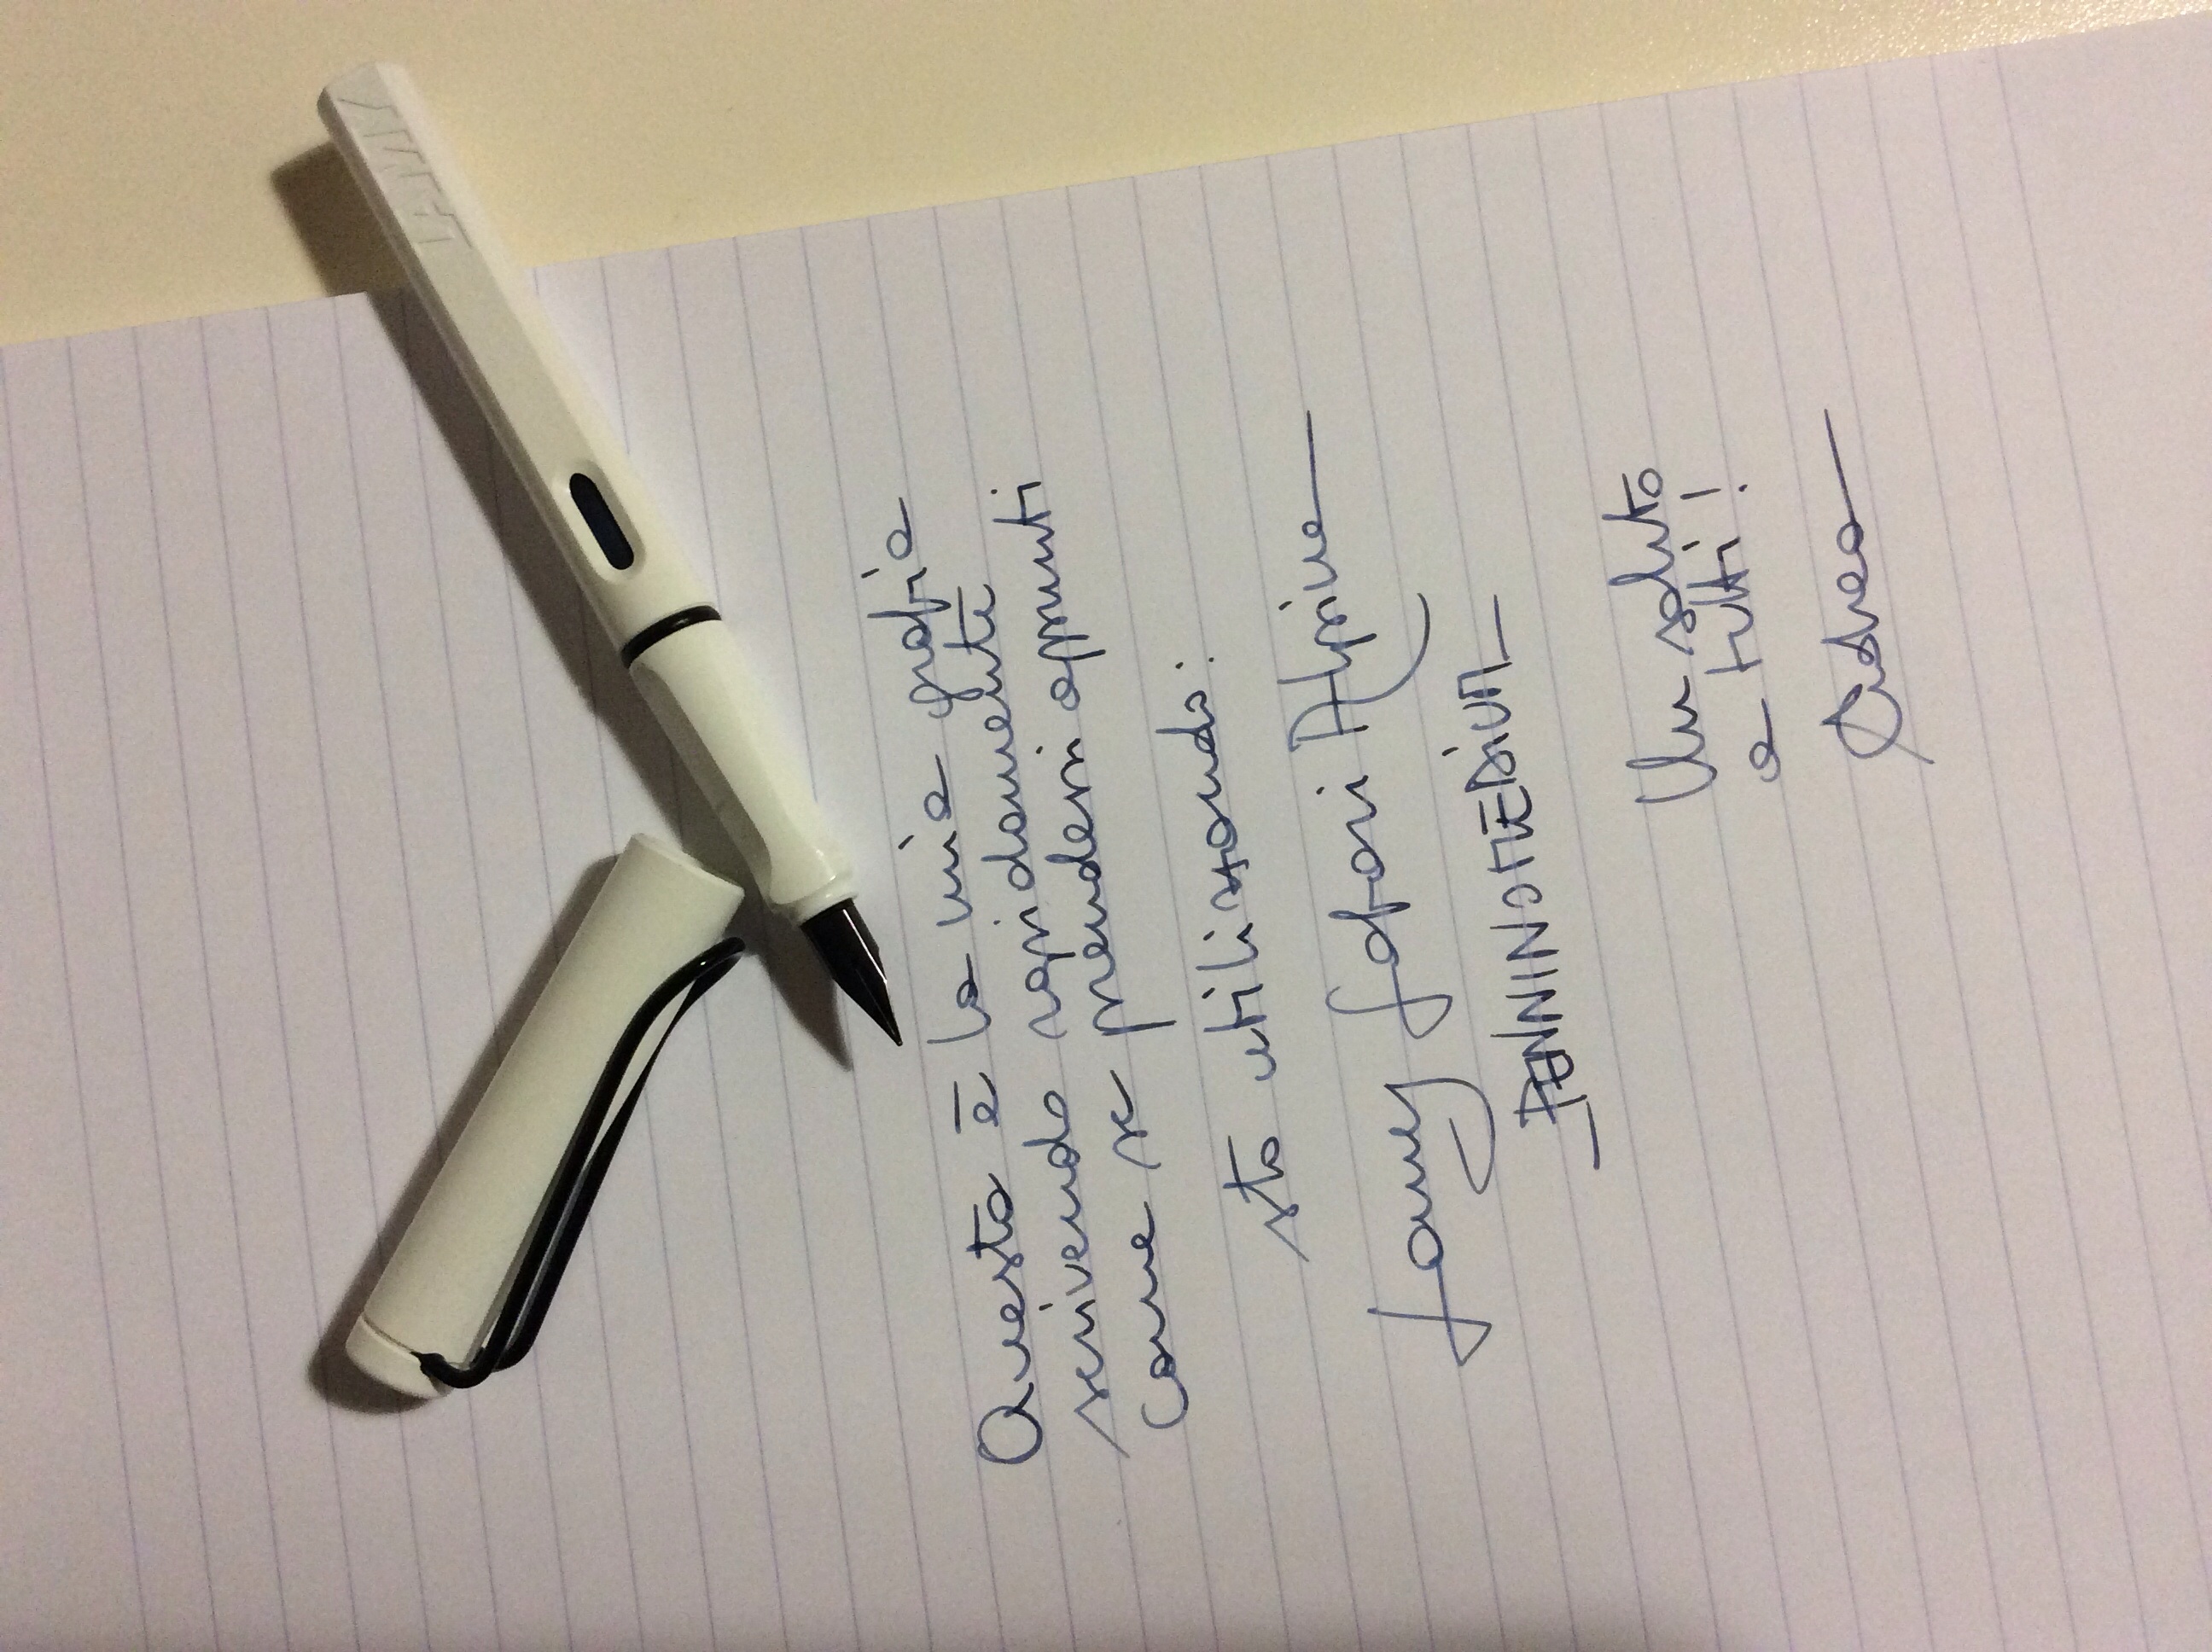 LAMY
Questa è la mia grafia
scrivendo rapidamente
come se prendessi appunti
sto utilizzando:
Lamy Safari Alpine
PENNINO MEDIUM
Un saluto
a tutti!
Andrea